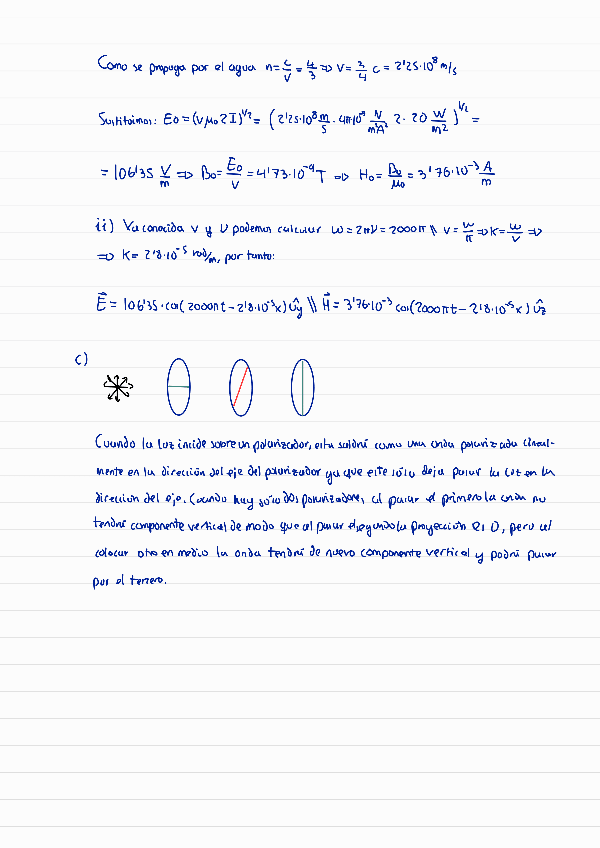 Como se propaga por el agua n = c/v = 4/3 => v = 3/4 c = 2'25·10^8 m/s
Sustituimos: E0 = (vμ0 2I)^1/2 = (2'25·10^8 m/s · 4π10^-7 N/m²A² 2· 20 W/m²)^1/2 =
= 106'35 V/m => B0 = E0/v = 4'73·10^-7 T => H0 = B0/μ0 = 3'76·10^-3 A/m
ii) Ya conocida v y ν podemos calcular ω = 2πν = 2000π // v = ω/k => k = ω/v =>
=> k = 2'8·10^-5 rad/m, por tanto:
E = 106'35·cos(2000πt - 2'8·10^-5 x) ûy // H = 3'76·10^-3 cos(2000πt - 2'8·10^-5 x) ûz
c)
Cuando la luz incide sobre un polarizador, esta saldrá como una onda polarizada
mente en la dirección del eje del polarizador ya que este sólo deja pasar la luz en la
dirección del eje. Cuando hay sólo dos polarizadores, al pasar el primero la onda no
tendrá componente vertical de modo que al pasar el segundo la proyección es 0, pero al
colocar otro en medio la onda tendrá de nuevo componente vertical y podrá pasar
por el tercero.